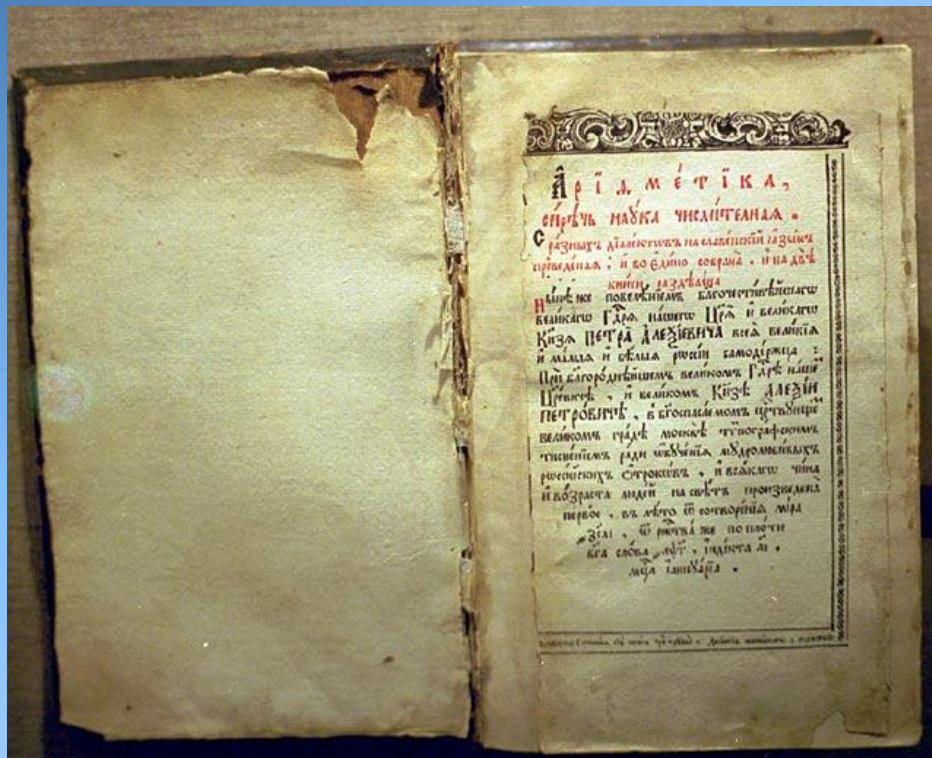 А҆рїѳме́тїка,
си́рѣчь наꙋ́ка числи́телная.
С̾ ра́зныхъ дїале́ктѡвъ на славе́нскїй ꙗ҆зы́къ
преведе́наѧ, и҆ во є҆ди́но собрана̀, и҆ на двѣ̀
кни̑ги раздѣлена̀.
Ны́нѣ же повелѣ́нїемъ бл҃гочести́вѣйшагѡ
вели́кагѡ Гдⷭ҇рѧ на́шегѡ Цр҃ѧ̀ и҆ вели́кагѡ
Кн҃зѧ ПЕТРА̀ А҆ЛЕѮІ́ЕВИЧА всеѧ̀ вели́кїѧ
и҆ ма́лыѧ и҆ бѣ́лыѧ рѡссі́и самоде́ржца:
Прѝ бл҃горо́днѣйшемъ вели́комъ Гдⷭ҇рѣ на́шемъ
Цр҃е́вичѣ, и҆ вели́комъ Кн҃зѣ А҆ЛЕѮІ́И
ПЕТРО́ВИЧѢ, в̾ бг҃оспаса́емомъ црⷭ҇твꙋющемъ
вели́комъ гра́дѣ москвѣ̀ тѷпогра́фскимъ
тисне́нїемъ ра́ди ѡ҆бꙋче́нїѧ мꙋдролюби́выхъ
рѡссі́йскихъ ѻ҆́трокѡвъ, и҆ всѧ́кагѡ чи́на
и҆ во́зраста люде́й на свѣ́тъ произведена̀
пе́рвое, въ лѣ́то ѿ сотворе́нїѧ мі́ра
҂зсаі, ѿ ржⷭ҇тва̀ же по пло́ти
бг҃а сло́ва ҂аѱг, і҆ндїкта аі.
мцⷭ҇а і҆аннꙋа́рїа.